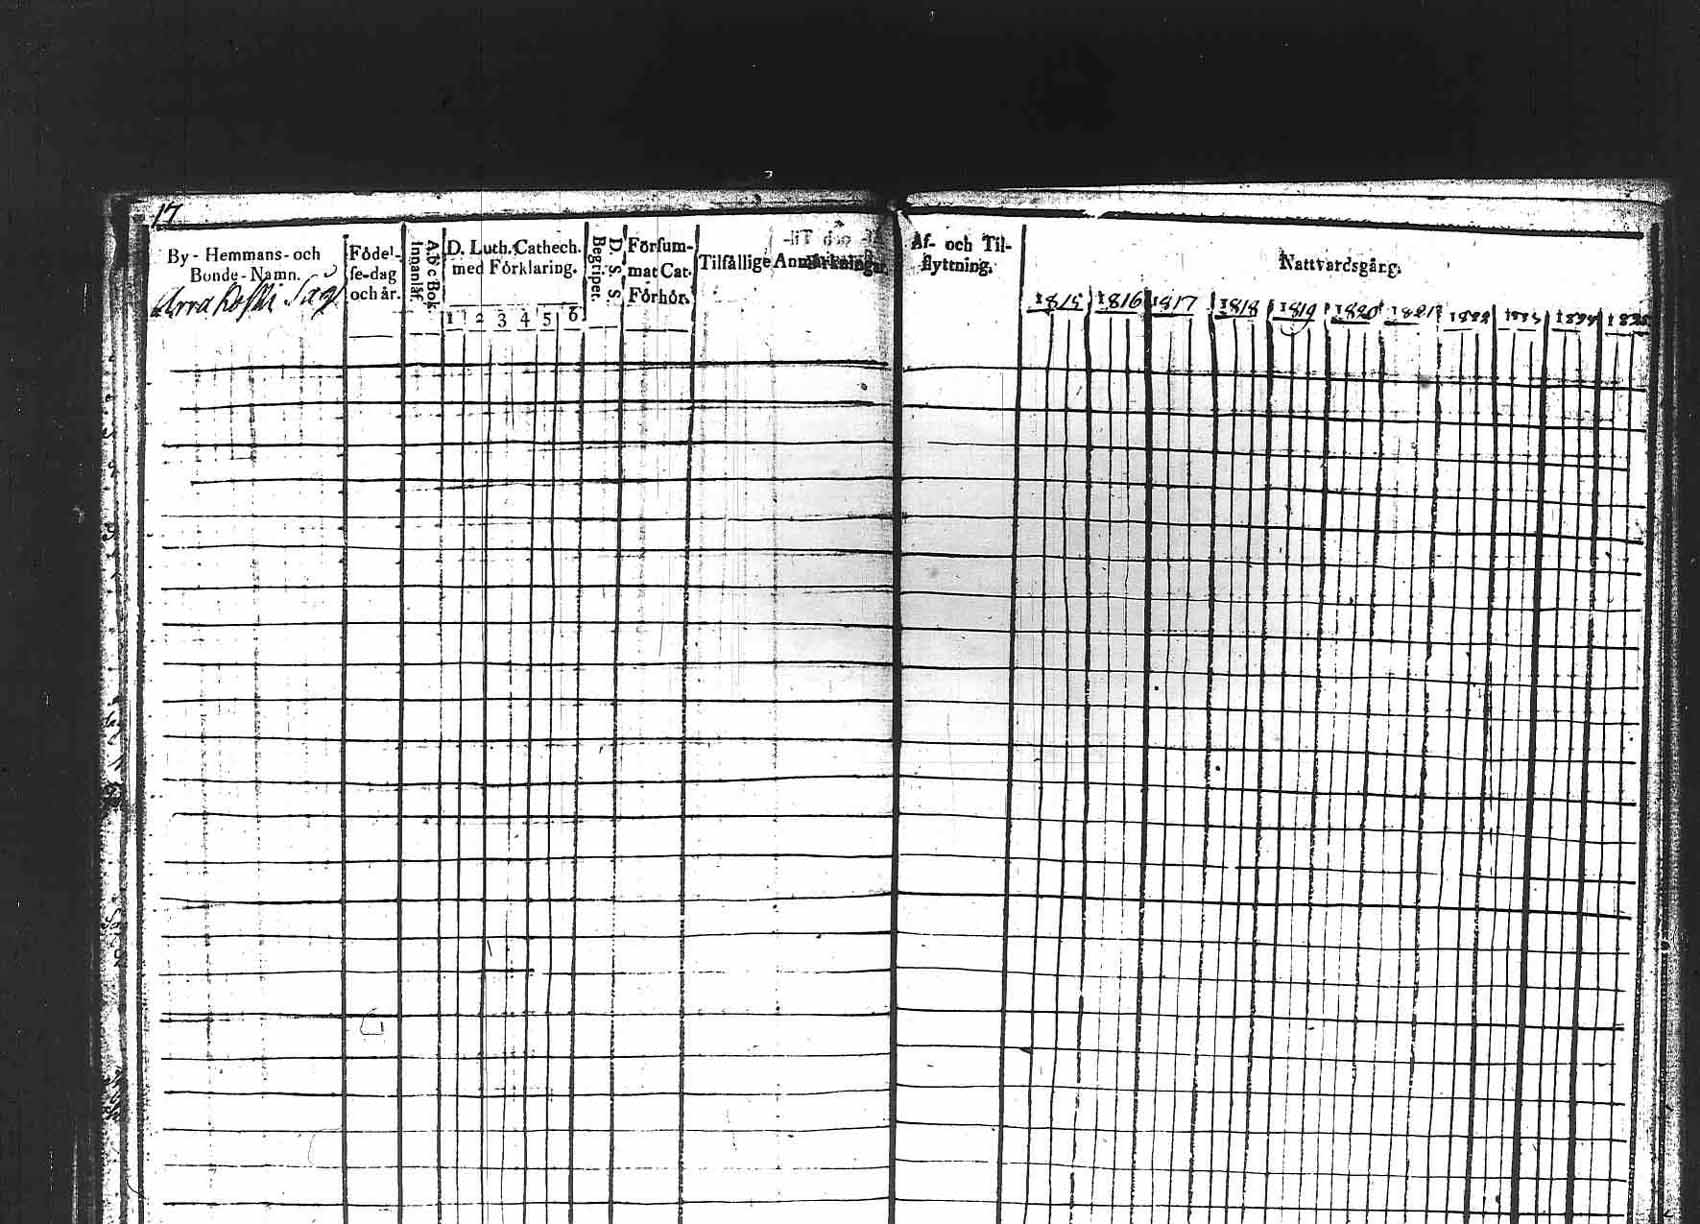 17
By- Hemmans- och
Bonde-Namn.
Såg
Födel-
se-dag
och år.
Abc Bok.
Innanläs.
D. Luth. Cathech.
med Förklaring.
1 2 3 4 5 6
D. S. S.
Begriper.
Försum-
mat Cat.
Förhör.
Tilfällige Anmärkningar.
Af- och Til-
flyttning.
Nattvardsgång.
1815 1816 1817 1818 1819 1820 1821